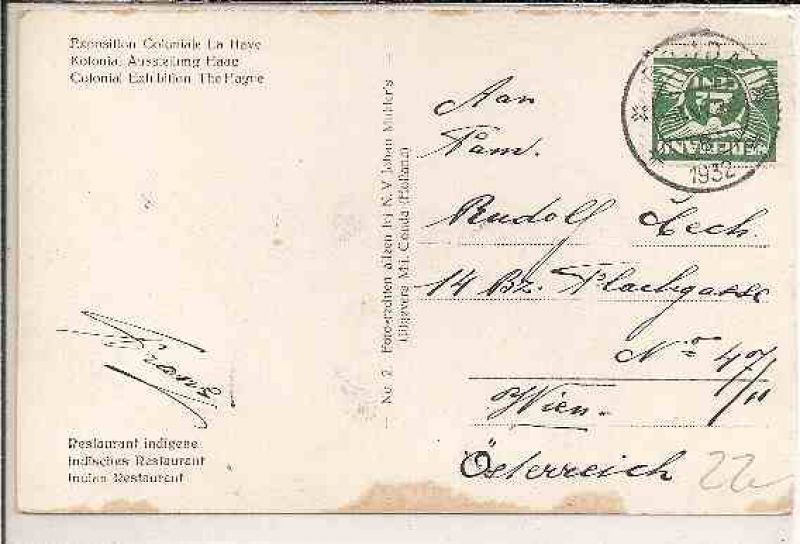 Exposition Coloniale La Haye
Kolonial Ausstellung Haag
Colonial Exhibition The Hague
Restaurant indigene
Indisches Restaurant
Indian Restaurant
Franz
No. 2
N.V. Johan Mulder's
Uitgevers Mij. Gouda (Holland)
GOUDA
1932
NEDERLAND
Aan
Fam.
Rudolf
14 Bz. Flachgasse
No 47/11
Wien.
Österreich
22